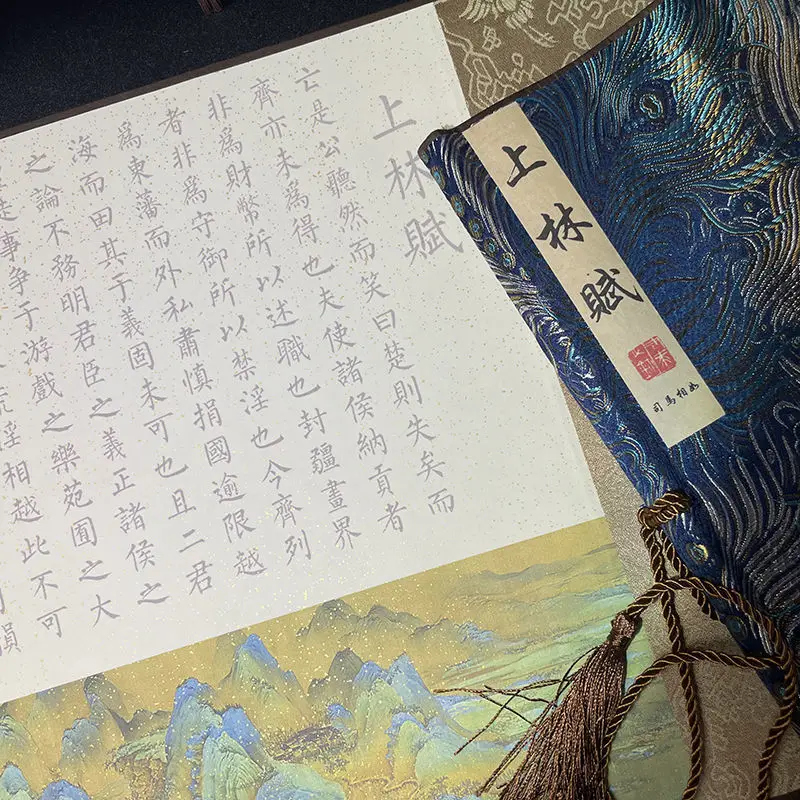 上林賦
亡是公聽然而笑曰楚則失矣而
齊亦未爲得也夫使諸侯納貢者
非爲財幣所以述職也封疆畫界
者非爲守御所以禁淫也今齊列
爲東藩而外私肅慎捐國逾限越
海而田其于義固未可也且二君
之論不務明君臣之義正諸侯之
徒事争于游戲之樂苑囿之大
荒淫相越此不可
上林賦
司馬相如